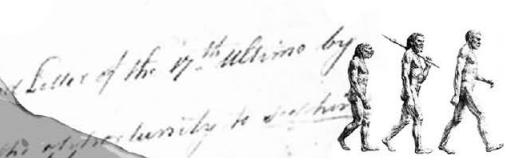 Letter of the 17th Ultimo by
the opportunity to